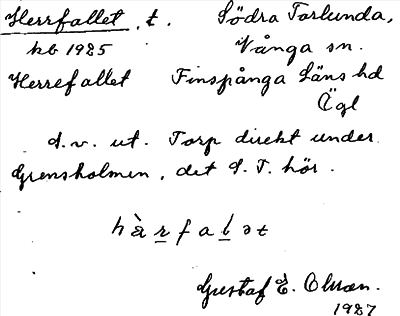 Herrfallet, t. Södra Torlunda,
kb 1925 Vånga sn.
Herrefallet Finspånga Läns hd
Ögl
d.v. ut. Torp direkt under
Grensholmen, det S. T. hör.
hàr̲fal̲ət
Gustaf E. Olsson.
1927